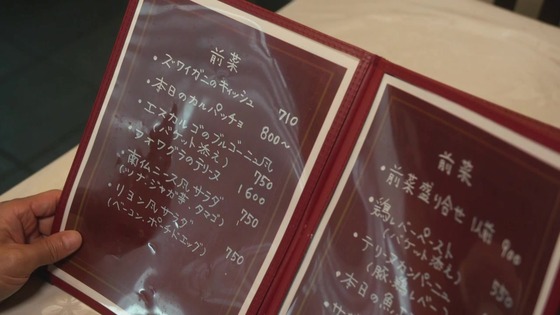 前菜
・ズワイガニのキィッシュ 710
・本日のカルパッチョ 800〜
・エスカルゴのブルゴーニュ風
(バケット添え) 750
・フォワグラのテリーヌ 1600
・南仏ニース風サラダ
(ツナ・ジャガ芋・タマゴ) 750
・リヨン風サラダ
(ベーコン、ポーチドエッグ) 750
前菜
・前菜盛り合せ 900
・鶏レバーペースト
(バケット添え) 550
・テリーヌカンパーニュ
・本日の魚